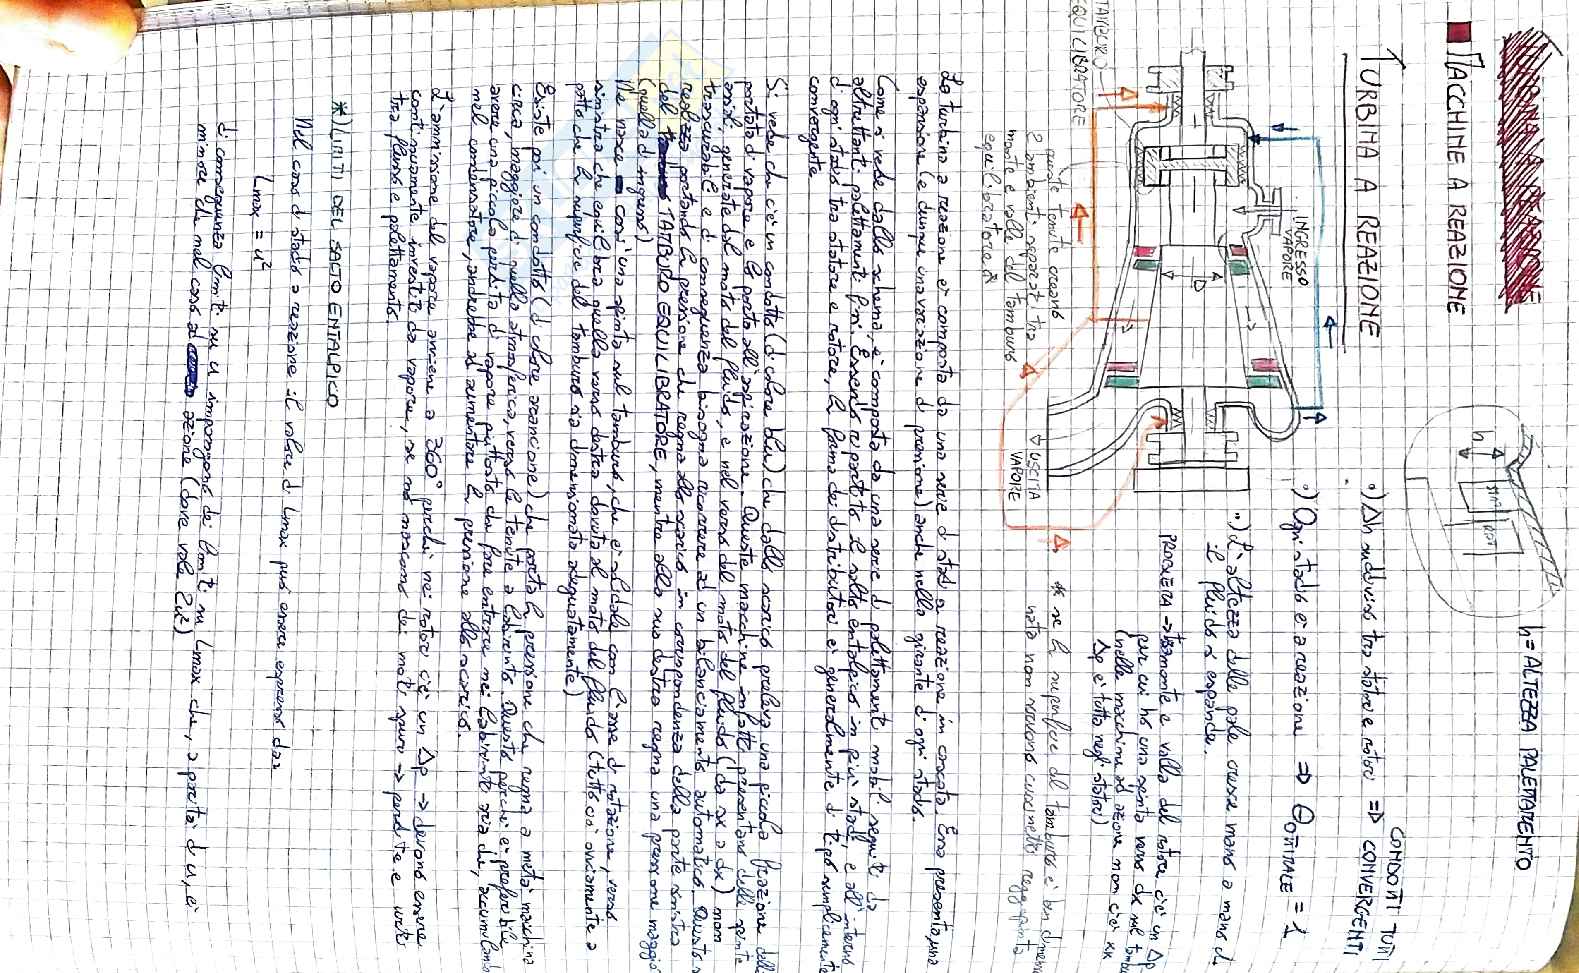 MACCHINE A REAZIONE
TURBINA A REAZIONE
INGRESSO
VAPORE
TAMBURO
EQUILIBRATORE
queste tenute creano
2 ambienti separati tra
monte e valle del tamburo
equilibratore *
USCITA
VAPORE
h
STAT
ROT
h = ALTEZZA PALETTAMENTO
•) Δh suddiviso tra statore e rotore ⇒ CONDOTTI TUTTI
CONVERGENTI
•) Ogni stadio è a reazione ⇒ θ OTTIMALE = 1
•) L'altezza delle pale cresce mano a mano che
il fluido si espande.
PROBLEMA → tra monte e valle del rotore c'è un Δp
per cui ho una spinta verso dx nel
(nelle macchine ad azione non c'è xk
Δp è tutto negli statori)
* se la superficie del tamburo è ben
nata non servono cuscinetti reggispinta
La turbina a reazione è composta da una serie di stadi a reazione in cascata. Essa presenta una
espansione (e dunque una variazione di pressione) anche nella girante di ogni stadio.
Come si vede dallo schema, è composta da una serie di palettamenti mobili seguiti da
altrettanti palettamenti fissi. Essendo ripartito il salto entalpico in più stadi, e all'interno
di ogni stadio tra statore e rotore, la forma dei distributori è generalmente di tipo semplicemente
convergente
Si vede che c'è un condotto (di colore blu) che dallo scarico preleva una piccola frazione della
portata di vapore e la porta all'aspirazione. Queste macchine infatti presentano delle spinte
assiali, generate dal moto del fluido, e nel verso del moto del fluido (da sx a dx) non
trascurabili e di conseguenza bisogna ricorrere ad un bilanciamento automatico. Questo si
realizza portando la pressione che regna allo scarico in corrispondenza della parte sinistra
del TAMBURO EQUILIBRATORE, mentre alla sua destra regna una pressione maggiore
(quella di ingresso)
Ne nasce così una spinta sul tamburo, che è solidale con l'asse di rotazione, verso
sinistra che equilibra quella verso destra dovuta al moto del fluido (tutto ciò ovviamente a
patto che la superficie del tamburo sia dimensionata adeguatamente)
Esiste poi un condotto (di colore arancione) che porta la pressione che regna a metà macchina
circa, maggiore di quella atmosferica, verso le tenute a labirinto. Questo perché è preferibile
avere una piccola perdita di vapore piuttosto che fare entrare nei labirinti aria che, accumulandosi
nel condensatore, andrebbe ad aumentare la pressione allo scarico.
L'ammissione del vapore avviene a 360° perché nei rotori c'è un Δp → devono essere
continuamente investiti da vapore, se no nascono dei moti spuri → perdite e urti
tra fluido e palettamento.
*) LIMITI DEL SALTO ENTALPICO
Nel caso di stadio a reazione il valore di Lmax può essere espresso da:
Lmax = u²
di conseguenza limiti su u impongono dei limiti su Lmax che, a parità di u, è
minore che nel caso ad azione (dove vale 2u²)